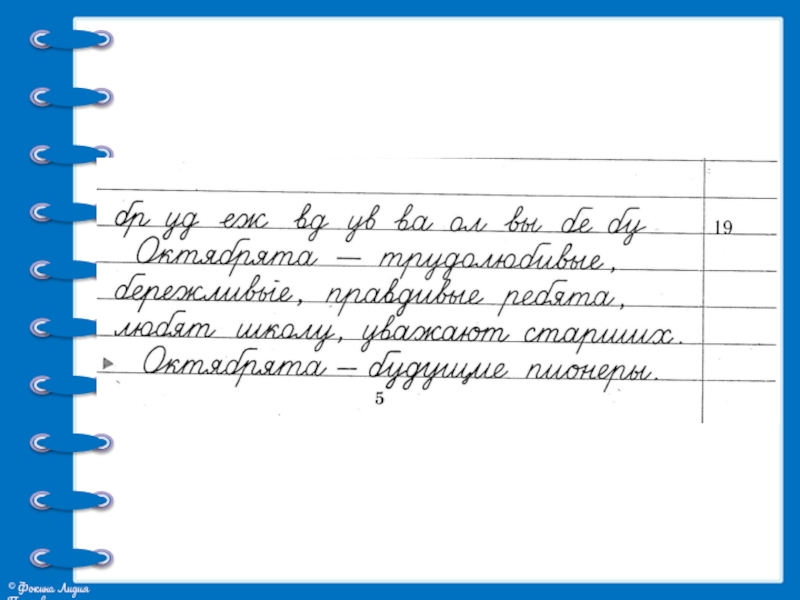 бр уд еж вд ув ва ол вы бе бу 19
Октябрята — трудолюбивые,
бережливые, правдивые ребята,
любят школу, уважают старших.
Октябрята — будущие пионеры.
5
© Фокина Лидия